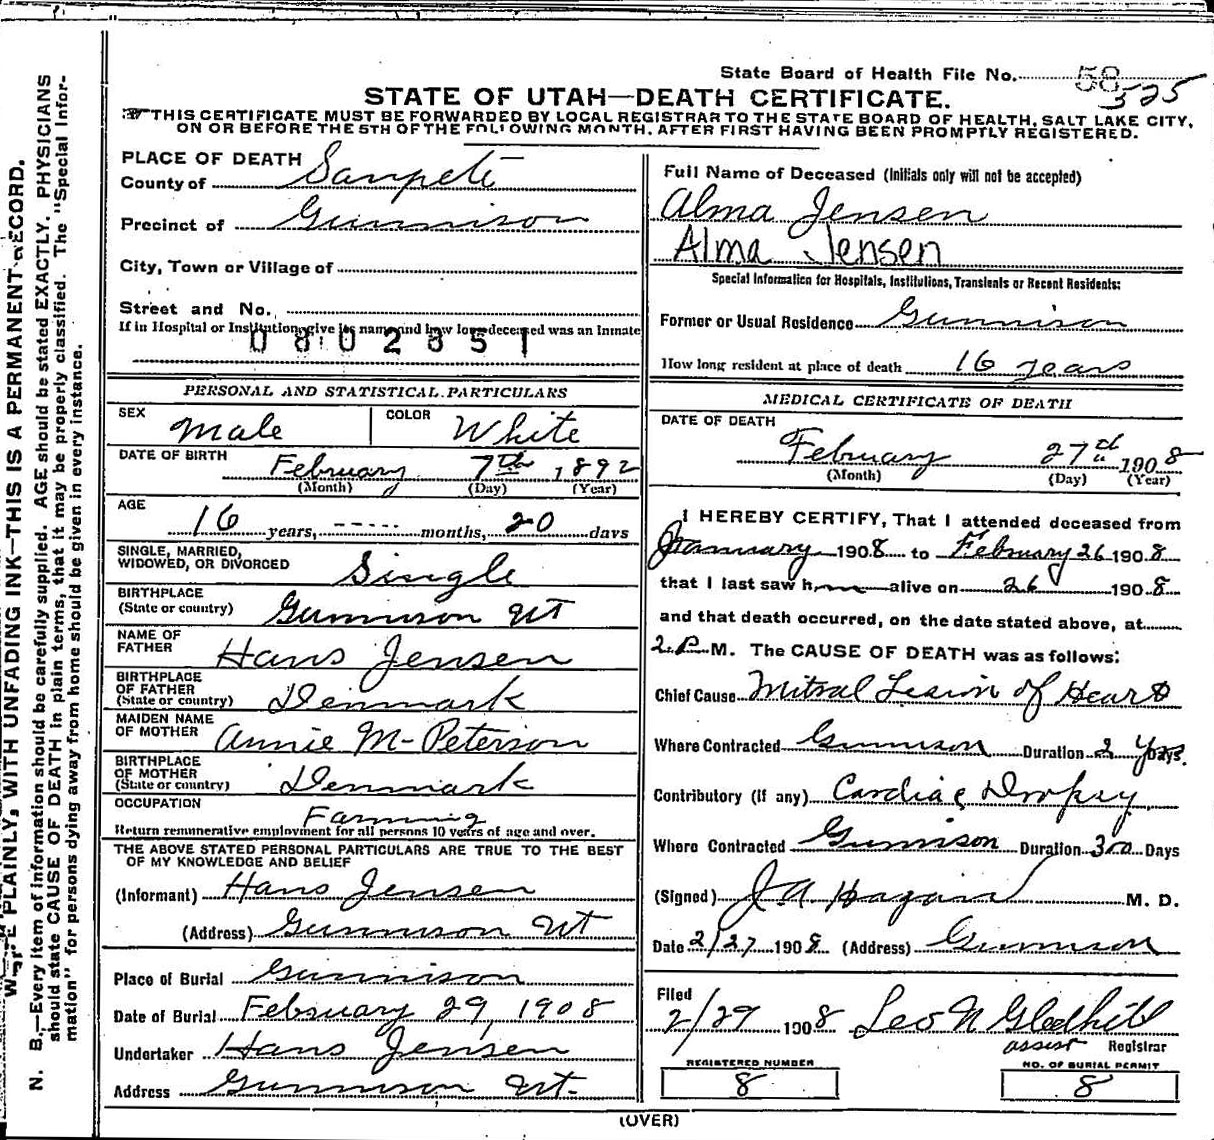 State Board of Health File No. 58
525
STATE OF UTAH—DEATH CERTIFICATE.
THIS CERTIFICATE MUST BE FORWARDED BY LOCAL REGISTRAR TO THE STATE BOARD OF HEALTH, SALT LAKE CITY,
ON OR BEFORE THE 5TH OF THE FOLLOWING MONTH, AFTER FIRST HAVING BEEN PROMPTLY REGISTERED.
PLACE OF DEATH
County of Sanpete
Precinct of Gunnison
City, Town or Village of
Street and No.
If in Hospital or Institution, give its name and how long deceased was an Inmate
0802351
PERSONAL AND STATISTICAL PARTICULARS
SEX Male COLOR White
DATE OF BIRTH February 7th 1892
(Month) (Day) (Year)
AGE
16 years, ----- months, 20 days
SINGLE, MARRIED,
WIDOWED, OR DIVORCED Single
BIRTHPLACE
(State or country) Gunnison Ut
NAME OF
FATHER Hans Jensen
BIRTHPLACE
OF FATHER
(State or country) Denmark
MAIDEN NAME
OF MOTHER Annie M-Peterson
BIRTHPLACE
OF MOTHER
(State or country) Denmark
OCCUPATION Farming
Return remunerative employment for all persons 10 years of age and over.
THE ABOVE STATED PERSONAL PARTICULARS ARE TRUE TO THE BEST
OF MY KNOWLEDGE AND BELIEF
(Informant) Hans Jensen
(Address) Gunnison Ut
Place of Burial Gunnison
Date of Burial February 29, 1908
Undertaker Hans Jensen
Address Gunnison Ut.
Full Name of Deceased (Initials only will not be accepted)
Alma Jensen
Alma Jensen
Special Information for Hospitals, Institutions, Transients or Recent Residents:
Former or Usual Residence Gunnison
How long resident at place of death 16 years
MEDICAL CERTIFICATE OF DEATH
DATE OF DEATH
February 27th 1908
(Month) (Day) (Year)
I HEREBY CERTIFY, That I attended deceased from
January 1908 to February 26 1908
that I last saw him alive on 26 1908
and that death occurred, on the date stated above, at
2.P.M. The CAUSE OF DEATH was as follows:
Chief Cause Mitral Lesion of Heart
Where Contracted Gunnison Duration 2 Years
Contributory (If any) Cardiac Dropsy
Where Contracted Gunnison Duration 300 Days
(Signed) J A Hagan M. D.
Date 2/27 1908 (Address) Gunnison
Filed
2/29 1908 Leo N Gledhill
assist Registrar
REGISTERED NUMBER
8
NO. OF BURIAL PERMIT
8
(OVER)
PLAINLY, WITH UNFADING INK—THIS IS A PERMANENT RECORD.
N. B.—Every item of information should be carefully supplied. AGE should be stated EXACTLY. PHYSICIANS
should state CAUSE OF DEATH in plain terms, that it may be properly classified. The "Special Infor-
mation" for persons dying away from home should be given in every instance.